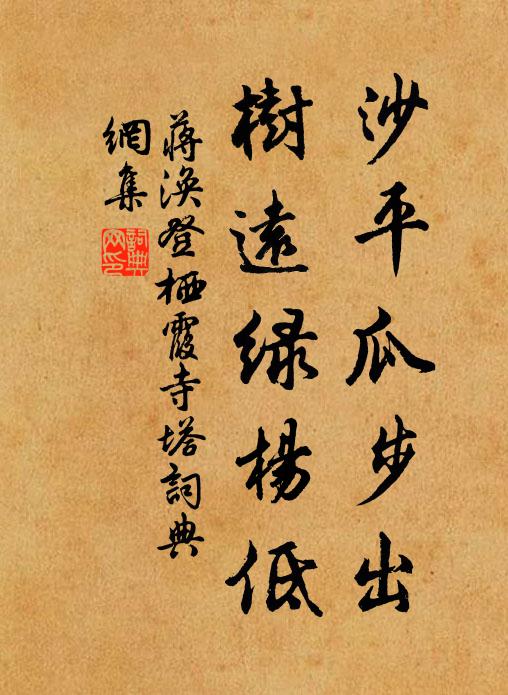 沙平瓜步出
樹遠綠楊低
蔣渙登栖霞寺塔詞典
網集
詞典
网印